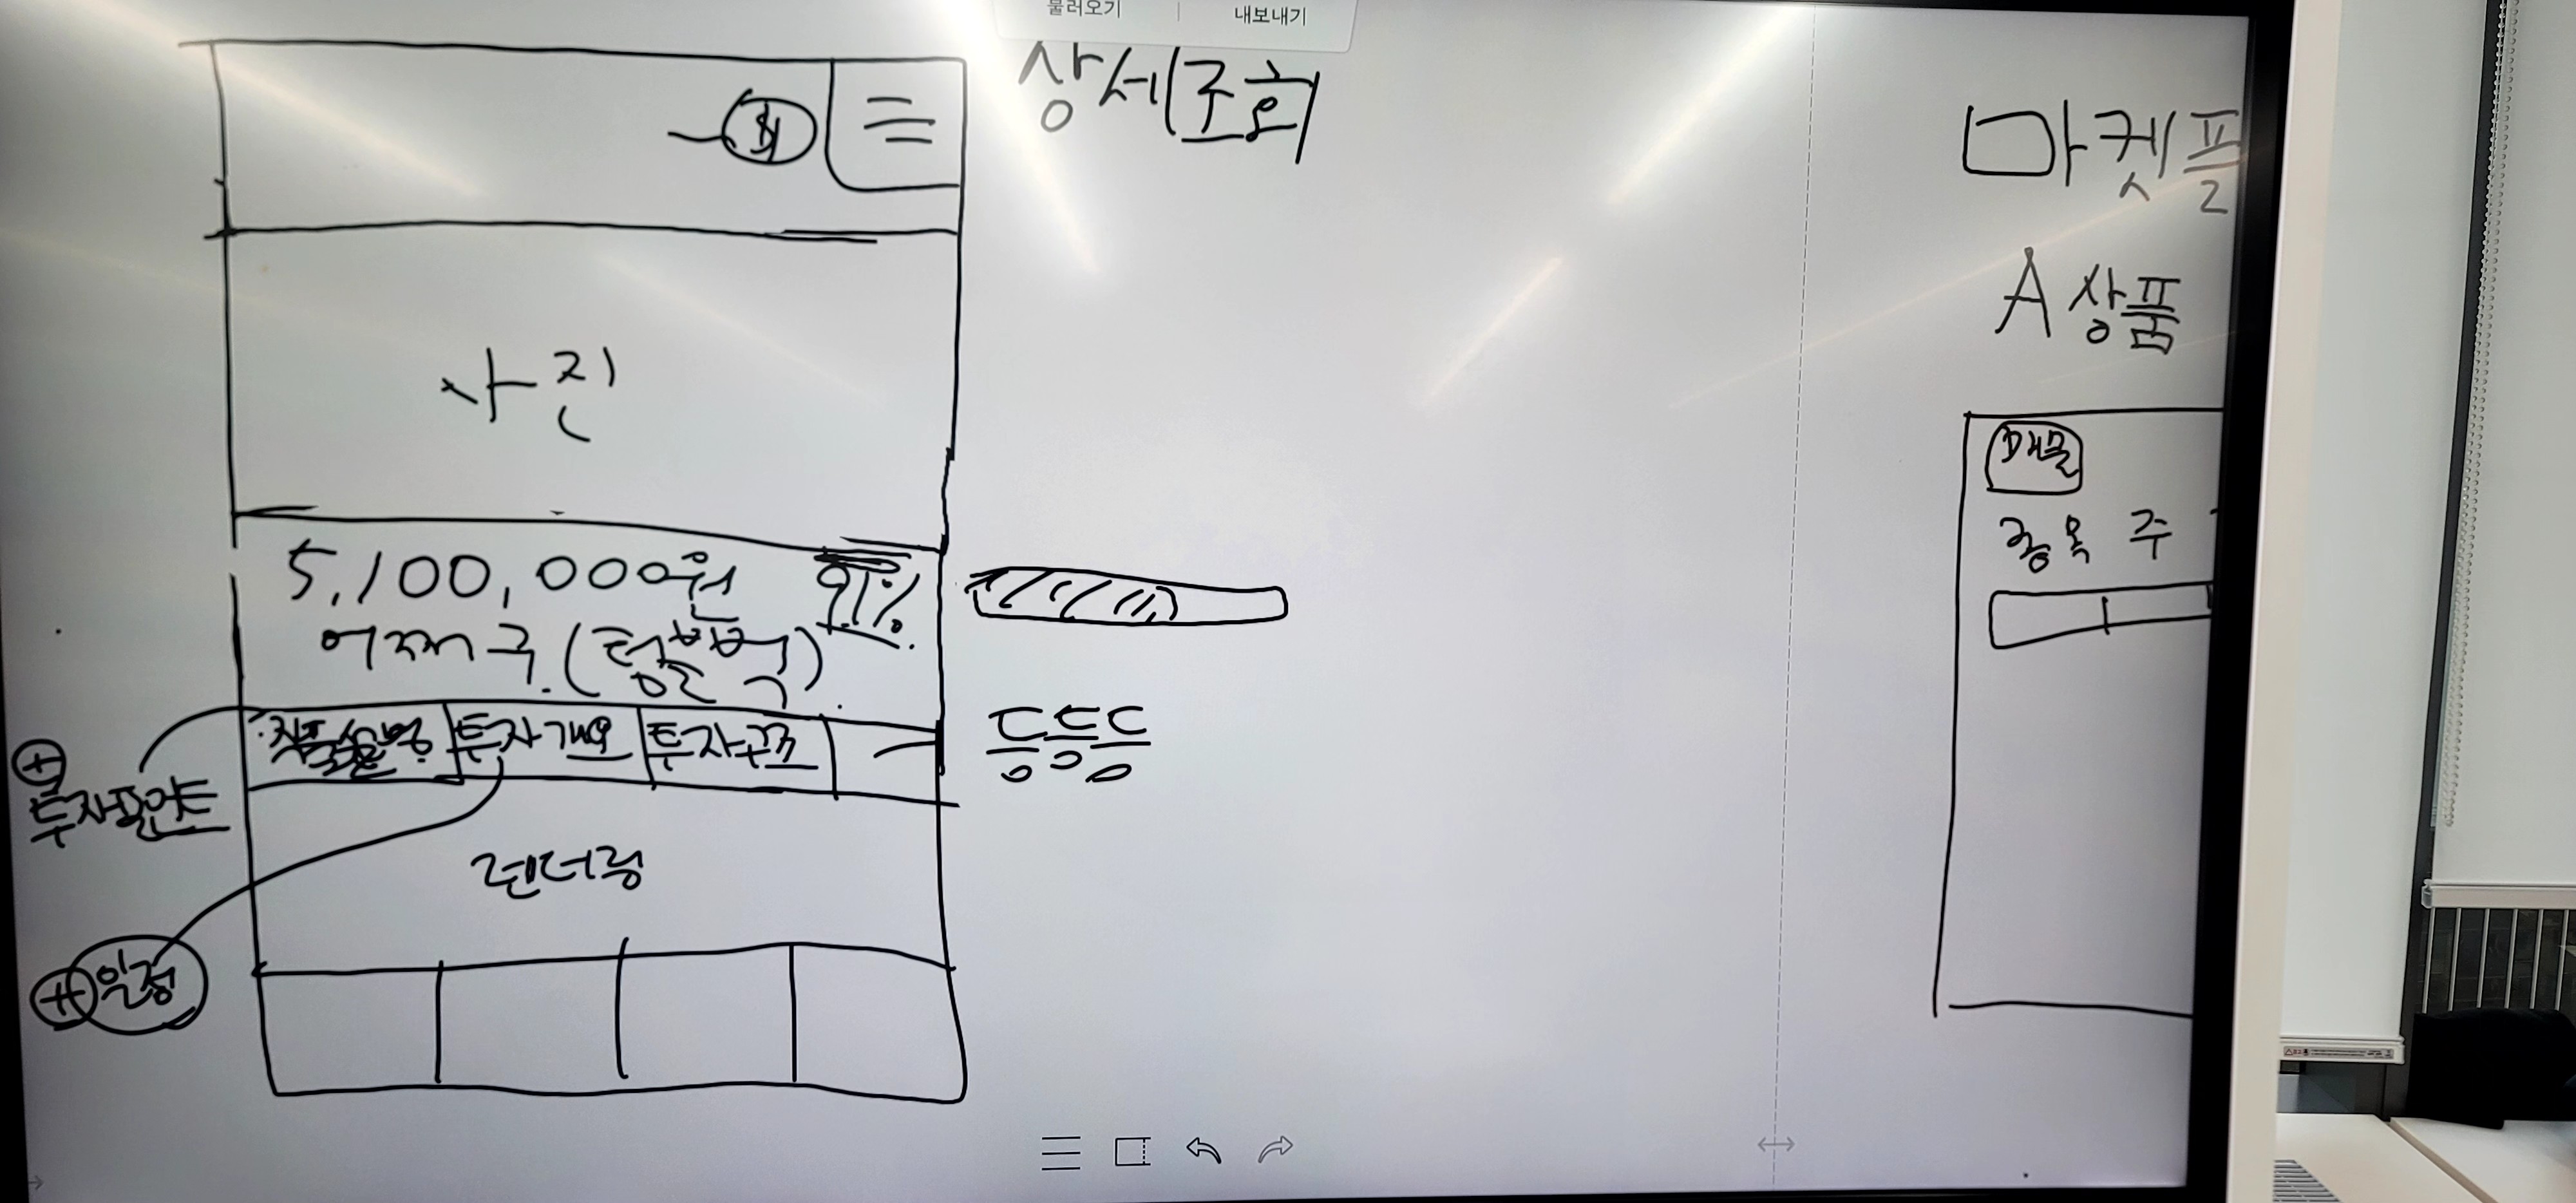 불러오기 내보내기
상세조회
사진
5,100,000원 91%
어쩌구 (텀블벅)
작품설명 투자개요 투자구조
등등등
⊕
투자포인트
렌더링
⊕ 일정
마켓플
A 상품
매물
종목 주